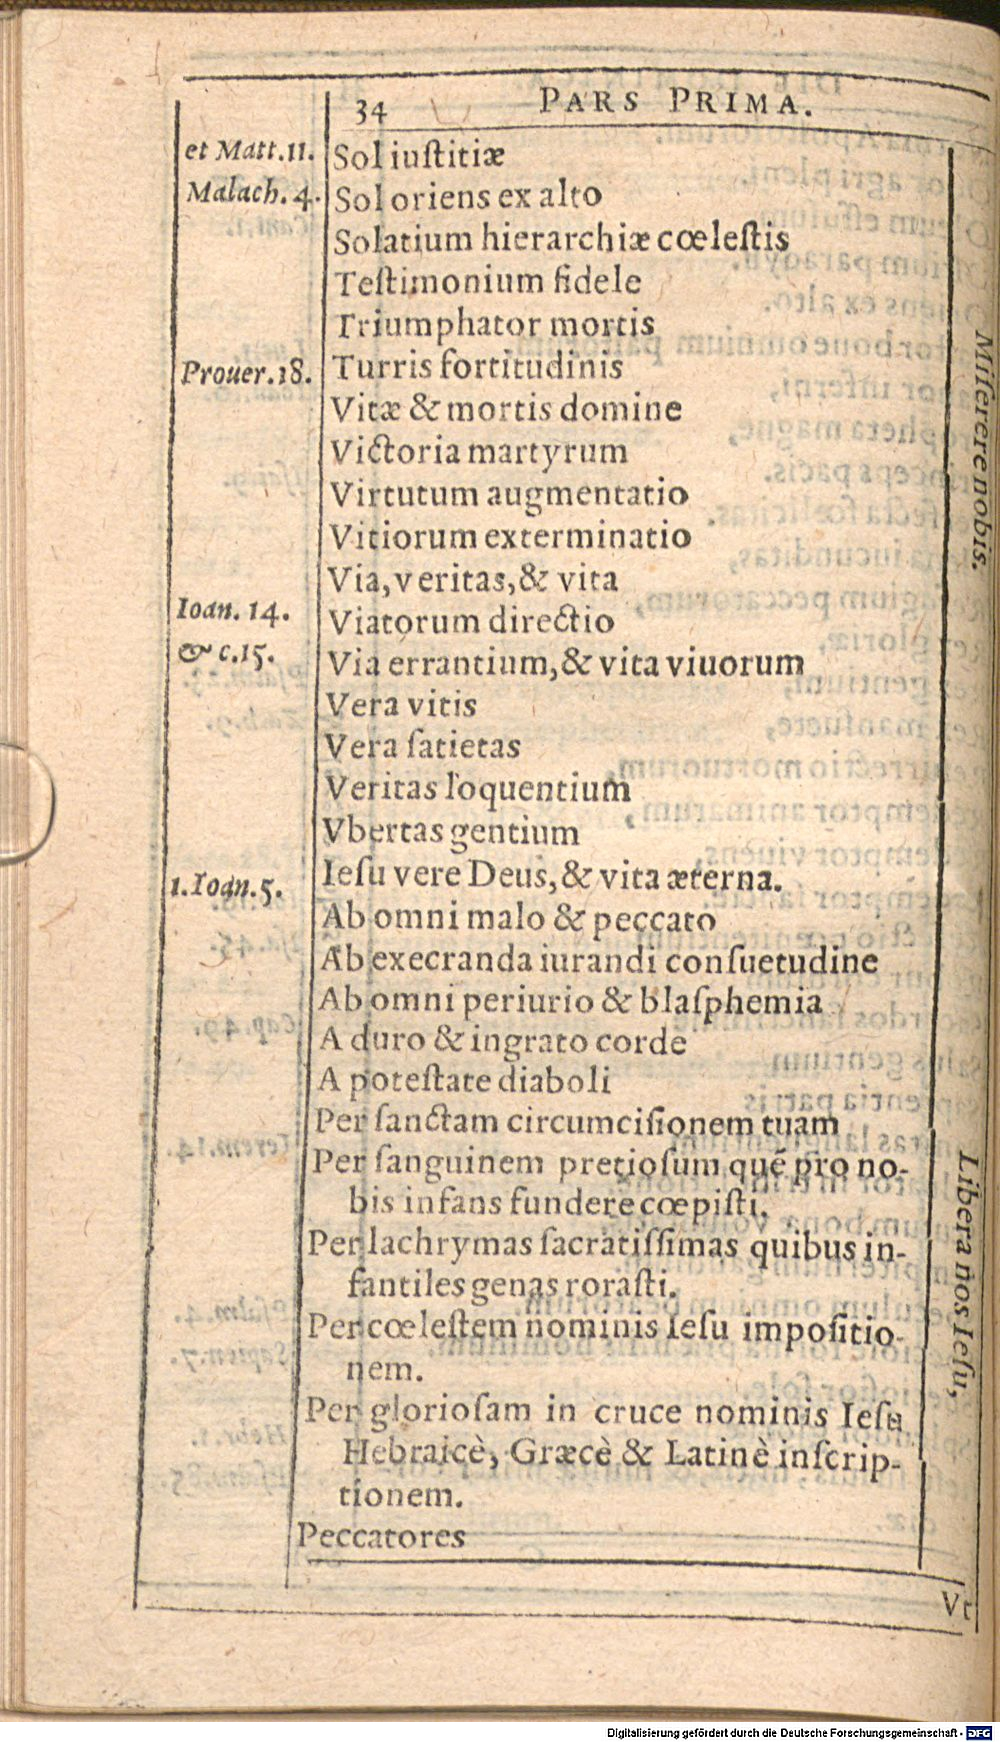 34 PARS PRIMA.
et Matt.11. Sol iuſtitiæ
Malach. 4. Sol oriens ex alto
Solatium hierarchiæ cœleſtis
Teſtimonium fidele
Triumphator mortis
Prouer.18. Turris fortitudinis
Vitæ & mortis domine
Victoria martyrum
Virtutum augmentatio
Vitiorum exterminatio
Via, veritas, & vita
Ioan. 14. Viatorum directio
& c.15. Via errantium, & vita viuorum
Vera vitis
Vera ſatietas
Veritas loquentium
Vbertas gentium
1. Ioan. 5. Ieſu vere Deus, & vita æterna.
Miſerere nobis.
Ab omni malo & peccato
Ab execranda iurandi conſuetudine
Ab omni periurio & blaſphemia
A duro & ingrato corde
A poteſtate diaboli
Per ſanctam circumciſionem tuam
Per ſanguinem pretioſum quē pro no-
bis infans fundere cœpiſti.
Per lachrymas ſacratiſſimas quibus in-
fantiles genas roraſti.
Per cœleſtem nominis Ieſu impoſitio-
nem.
Per glorioſam in cruce nominis Ieſu
Hebraicè, Græcè & Latinè inſcrip-
tionem.
Libera nos Ieſu,
Peccatores
Vt
Digitalisierung gefördert durch die Deutsche Forschungsgemeinschaft - DFG